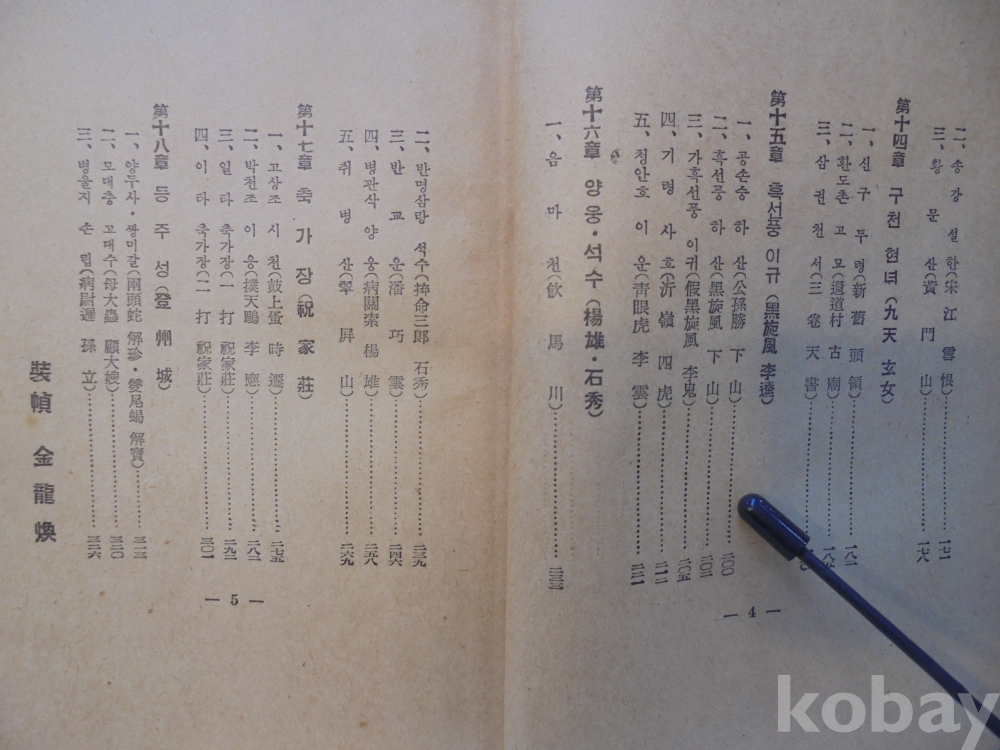 二、송강설한(宋江雪恨)……一七一
三、황문산(黃門山)……一七八
第十四章 구천현녀(九天玄女)
一、신구두령(新舊頭領)……一八一
二、환도촌고묘(還道村古廟)……一八五
三、삼권천서(三卷天書)
第十五章 흑선풍 이규(黑旋風 李逵)
一、공손승 하산(公孫勝 下山)……二〇〇
二、흑선풍 하산(黑旋風 下山)……二〇二
三、가흑선풍 이귀(假黑旋風 李鬼)……二〇五
四、기령사호(沂嶺四虎)……二一二
五、청안호 이운(靑眼虎 李雲)……二二一
第十六章 양웅·석수(楊雄·石秀)
一、음마천(飮馬川)……二三三
— 4 —
二、반명삼랑 석수(拚命三郎 石秀)……二三九
三、반교운(潘巧雲)……二四六
四、병관삭 양웅(病關索 楊雄)……二五八
五、취병산(翠屛山)……二六九
第十七章 축가장(祝家莊)
一、고상조 시천(鼓上蚤 時遷)……二七五
二、박천조 이응(撲天鵰 李應)……二八二
三、일타 축가장(一打 祝家莊)……二九二
四、이타 축가장(二打 祝家莊)……三〇一
第十八章 등주성(登州城)
一、양두사·쌍미갈(兩頭蛇 解珍·雙尾蝎 解寶)……三一三
二、모대충 고대수(母大蟲 顧大嫂)……三二〇
三、병울지 손립(病尉遲 孫立)……三二六
裝幀 金龍煥
— 5 —
kobay